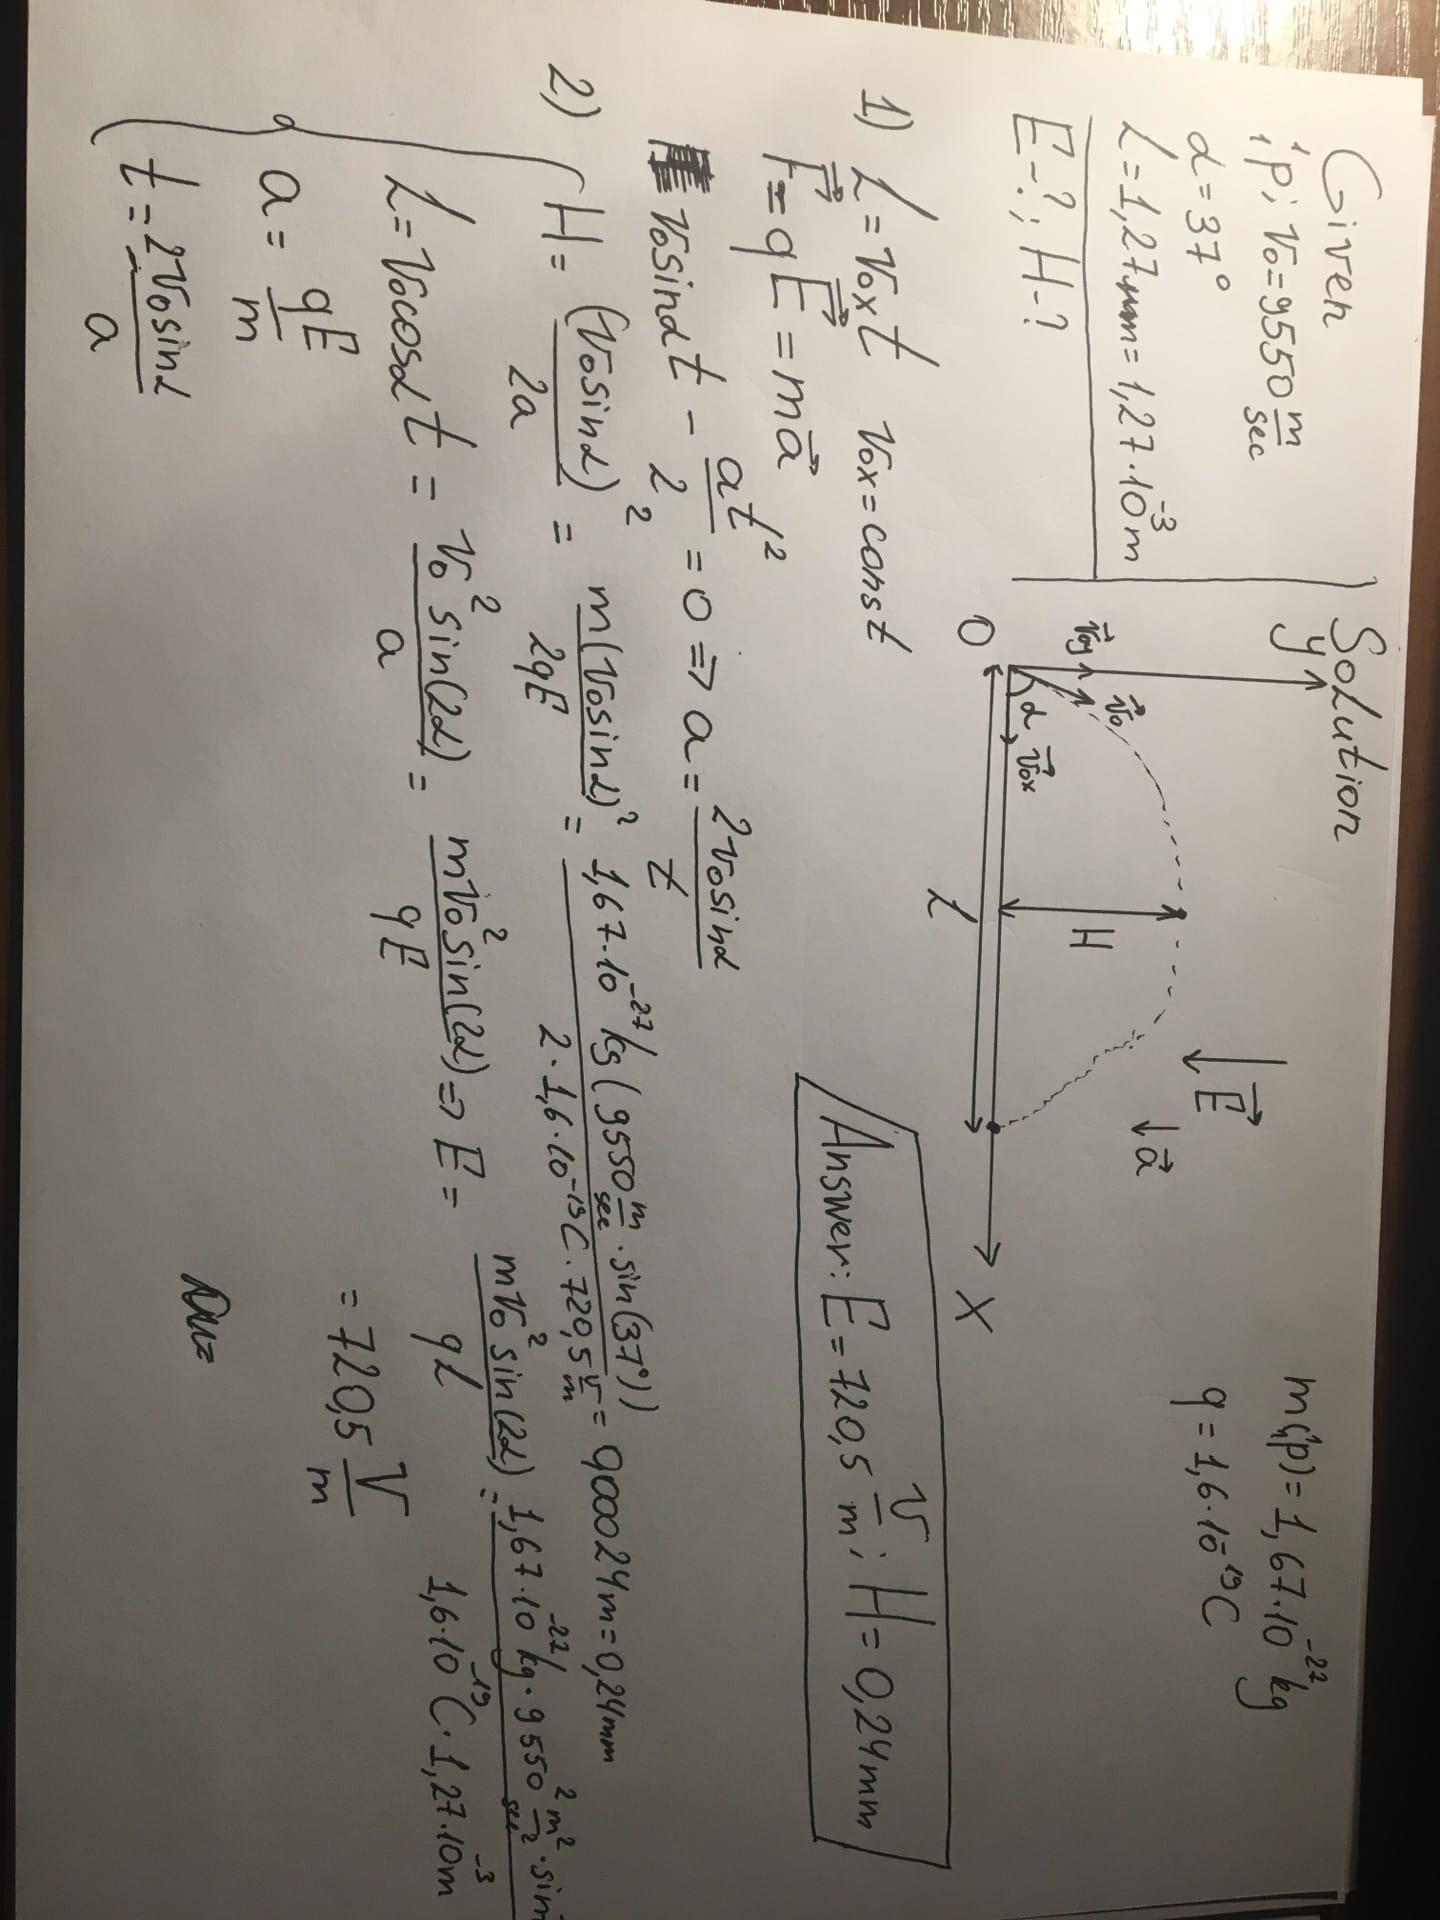 Given
¹₁p; v₀ = 9550 m/sec
α = 37°
L = 1,27mm = 1,27·10⁻³m
E-?; H-?
Solution
m(¹₁p) = 1,67·10⁻²⁷ kg
q = 1,6·10⁻¹⁹C
y
E⃗
a⃗
v⃗₀y
v⃗₀
α v⃗₀x
H
O
L
X
1) L = v₀x t v₀x = const
F⃗ = qE⃗ = ma⃗
v₀sinαt - at²/2 = 0 ⇒ a = 2v₀sinα/t
Answer: E = 720,5 V/m; H = 0,24mm
2) H = (v₀sinα)²/2a = m(v₀sinα)²/2qE = 1,67·10⁻²⁷kg(9550 m/sec · sin(37°))/2·1,6·10⁻¹⁹C·720,5 V/m = 0,00024m = 0,24mm
L = v₀cosαt = v₀²sin(2α)/a = mv₀²sin(2α)/qE ⇒ E = mv₀²sin(2α)/qL = 1,67·10⁻²⁷kg·9550² m²/sec²·sin/1,6·10⁻¹⁹C·1,27·10⁻³m
= 720,5 V/m
a = qE/m
t = 2v₀sinα/a